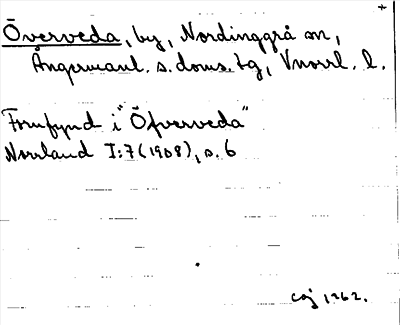 Överveda, by, Nordinggrå sn,
Ångermanl. s. doms. tg, Vnorrl. l.
Fornfynd i "Öfverveda"
Norrland I:7 (1908), s. 6
1262.